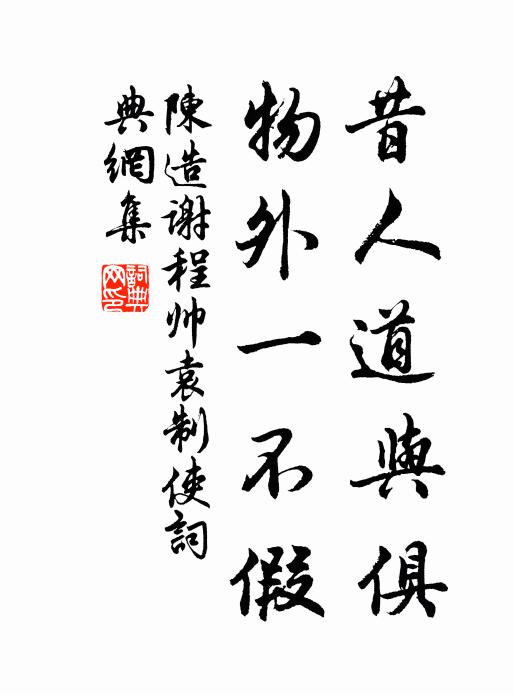 昔人道與俱
物外一不假
陳造謝程帅袁制使詞
典網集
詞典網印